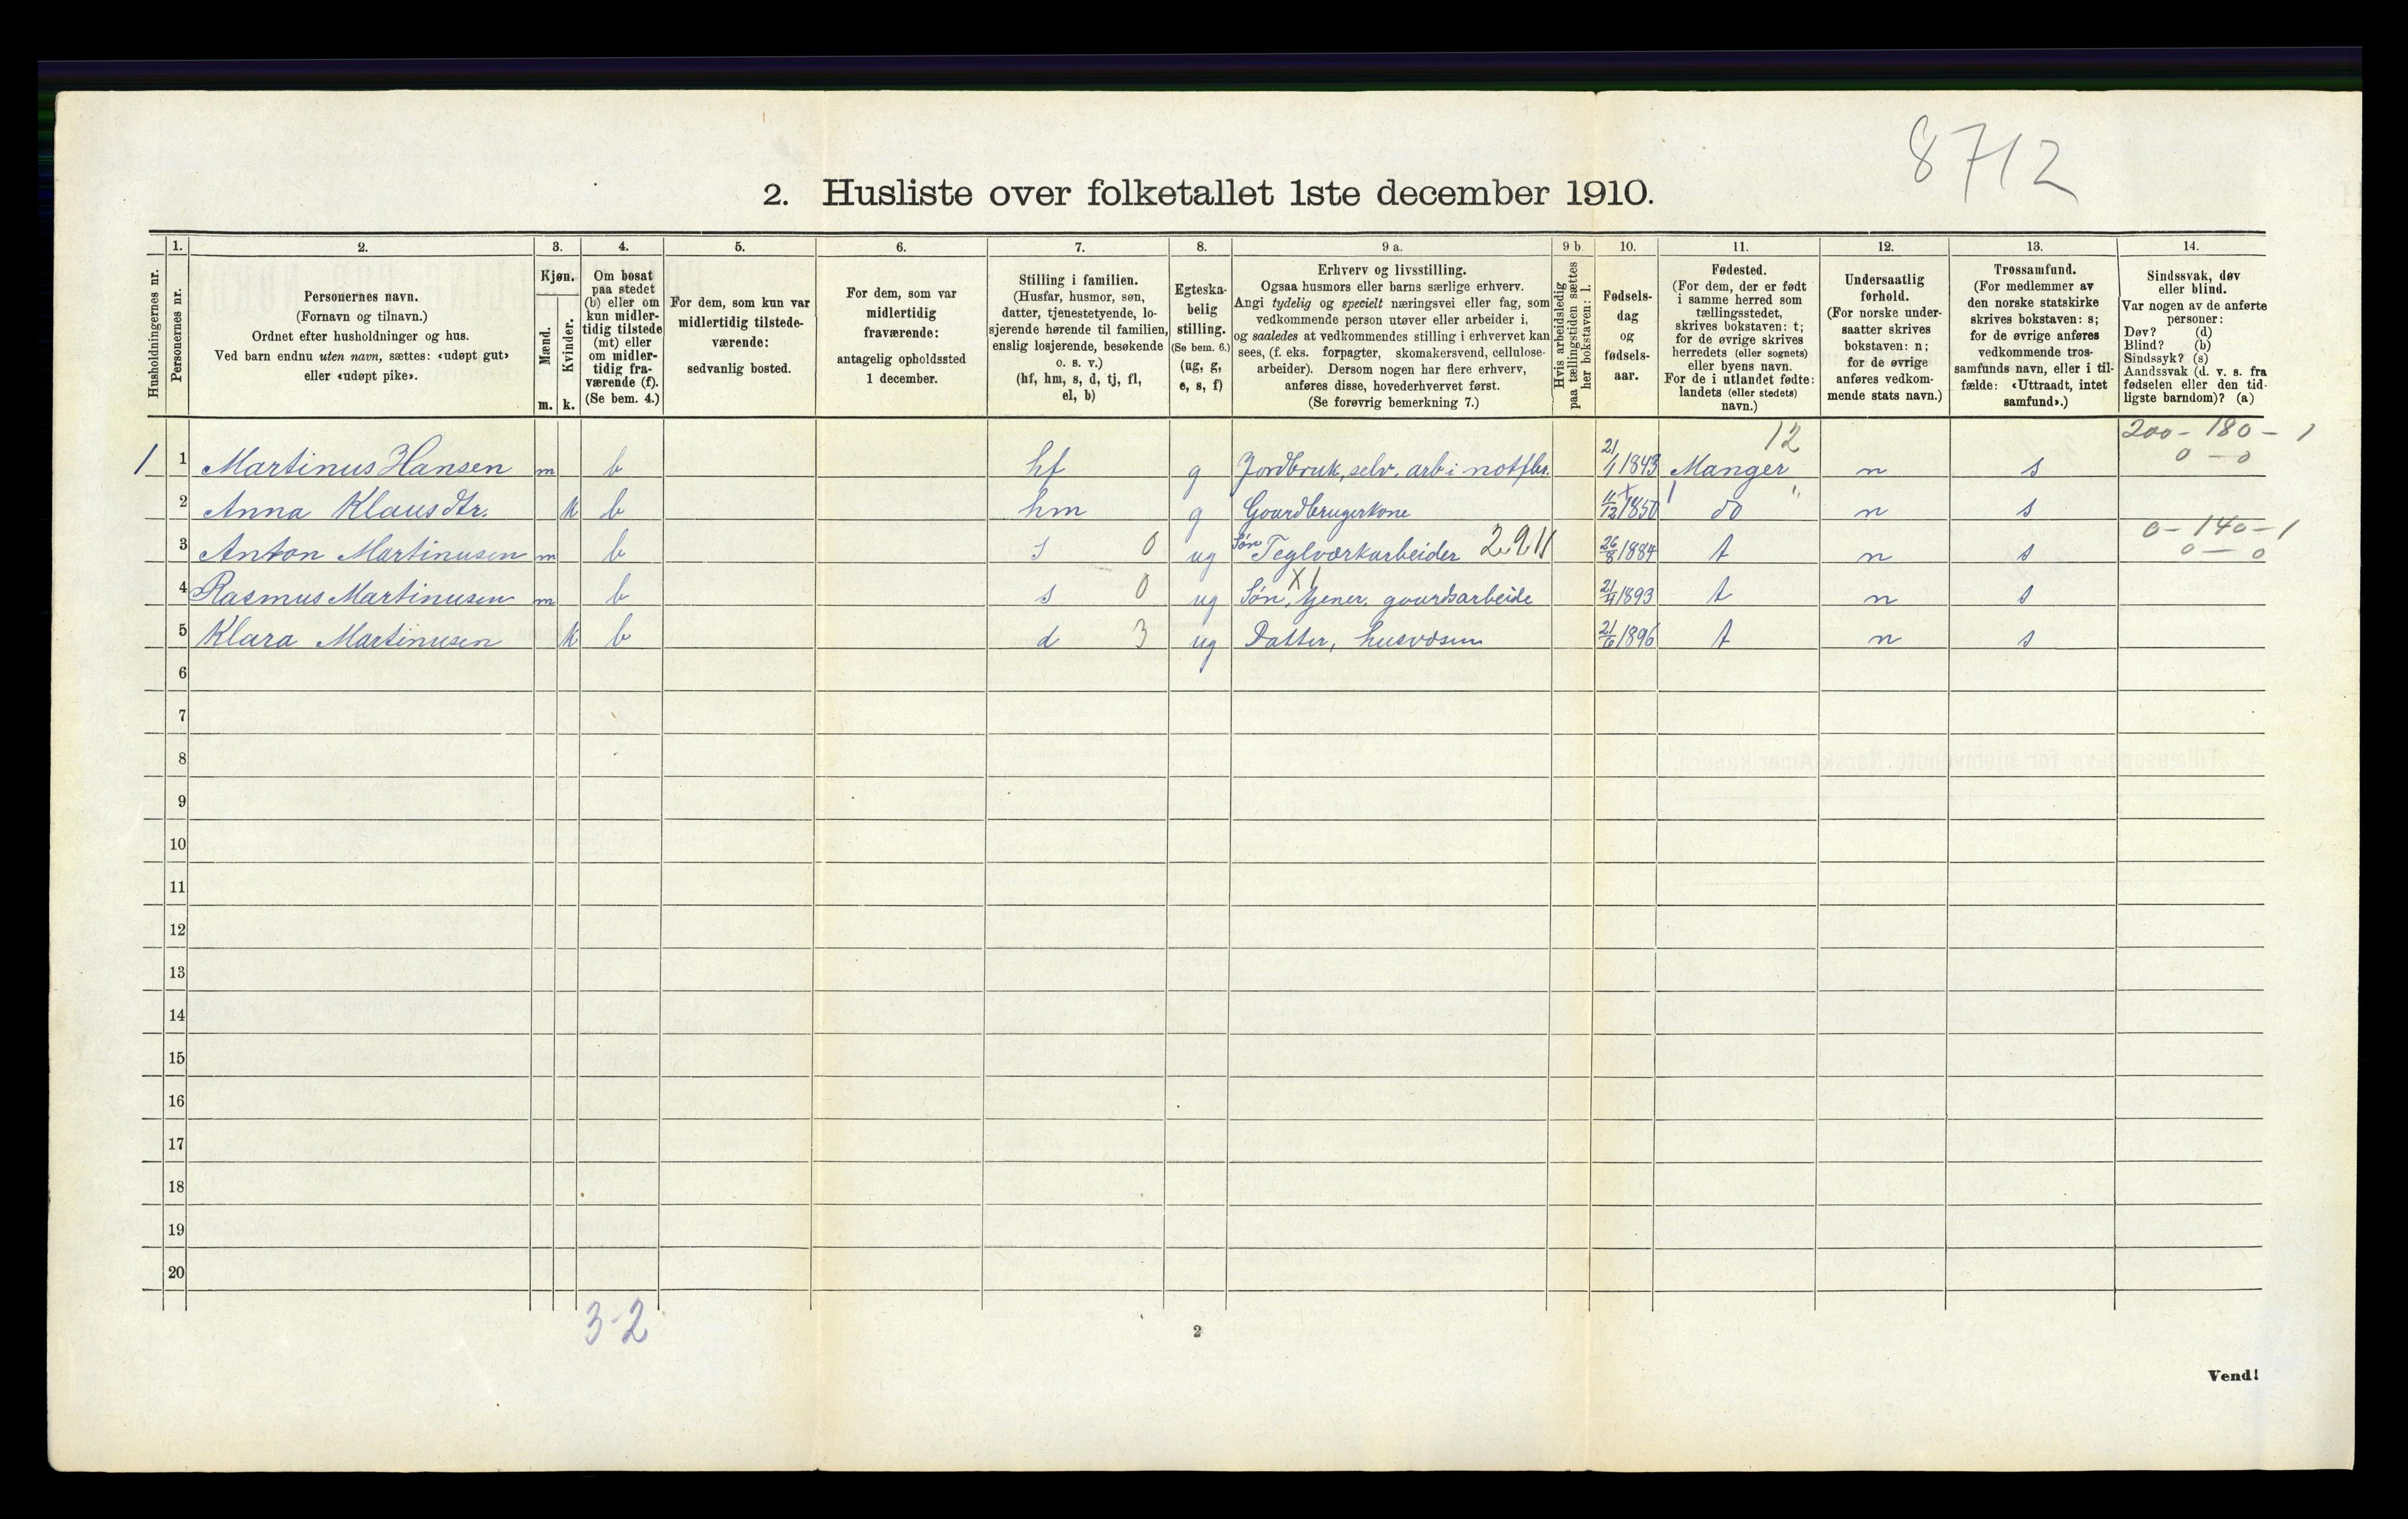 8712
2. Husliste over folketallet 1ste december 1910.
Husholdningernes nr.
1.
Personernes nr.
2.
Personernes navn.
(Fornavn og tilnavn.)
Ordnet efter husholdninger og hus.
Ved barn endnu uten navn, sættes: «udøpt gut»
eller «udøpt pike».
3.
Kjøn.
Mænd.
Kvinder.
m. k.
4.
Om bosat
paa stedet
(b) eller om
kun midler-
tidig tilstede
(mt) eller
om midler-
tidig fra-
værende (f).
(Se bem. 4.)
5.
For dem, som kun var
midlertidig tilstede-
værende:
sedvanlig bosted.
6.
For dem, som var
midlertidig
fraværende:
antagelig opholdssted
1 december.
7.
Stilling i familien.
(Husfar, husmor, søn,
datter, tjenestetyende, lo-
sjerende hørende til familien,
enslig losjerende, besøkende
o. s. v.)
(hf, hm, s, d, tj, fl,
el, b)
8.
Egteska-
belig
stilling.
(Se bem. 6.)
(ug, g,
e, s, f)
9 a.
Erhverv og livsstilling.
Ogsaa husmors eller barns særlige erhverv.
Angi tydelig og specielt næringsvei eller fag, som
vedkommende person utøver eller arbeider i,
og saaledes at vedkommendes stilling i erhvervet kan
sees, (f. eks. forpagter, skomakersvend, cellulose-
arbeider). Dersom nogen har flere erhverv,
anføres disse, hovederhvervet først.
(Se forøvrig bemerkning 7.)
9 b.
Hvis arbeidsledig
paa tællingstiden sættes
her bokstaven: l.
10.
Fødsels-
dag
og
fødsels-
aar.
11.
Fødested.
(For dem, der er født
i samme herred som
tællingsstedet,
skrives bokstaven: t;
for de øvrige skrives
herredets (eller sognets)
eller byens navn.
For de i utlandet fødte:
landets (eller stedets)
navn.)
12.
Undersaatlig
forhold.
(For norske under-
saatter skrives
bokstaven: n;
for de øvrige
anføres vedkom-
mende stats navn.)
13.
Trossamfund.
(For medlemmer av
den norske statskirke
skrives bokstaven: s;
for de øvrige anføres
vedkommende tros-
samfunds navn, eller i til-
fælde: «Uttraadt, intet
samfund».)
14.
Sindssvak, døv
eller blind.
Var nogen av de anførte
personer:
Døv? (d)
Blind? (b)
Sindssyk? (s)
Aandssvak (d. v. s. fra
fødselen eller den tid-
ligste barndom)? (a)
12 200 - 180 - 1
1 1 Martinus Hansen m b hf g Jordbruk, selv. arb i notfbr. 21/1 1843 Manger n s 0 - 0
2 Anna Klausdtr. k b hm g Gaardbrugerkone 11/12 1850 do " n s
0 - 140 - 1
3 Anton Martinusen m b s 0 ug Søn Teglværkarbeider 2911 26/8 1884 t n s 0 - 0
4 Rasmus Martinusen m b s 0 ug Søn, X1 gaardsarbeide 1893 t n s
5 Klara Martinusen k b d 3 ug Datter, husvæsen 21/6 1896 t n s
6
7
8
9
10
11
12
13
14
15
16
17
18
19
20
3-2
2
Vend!